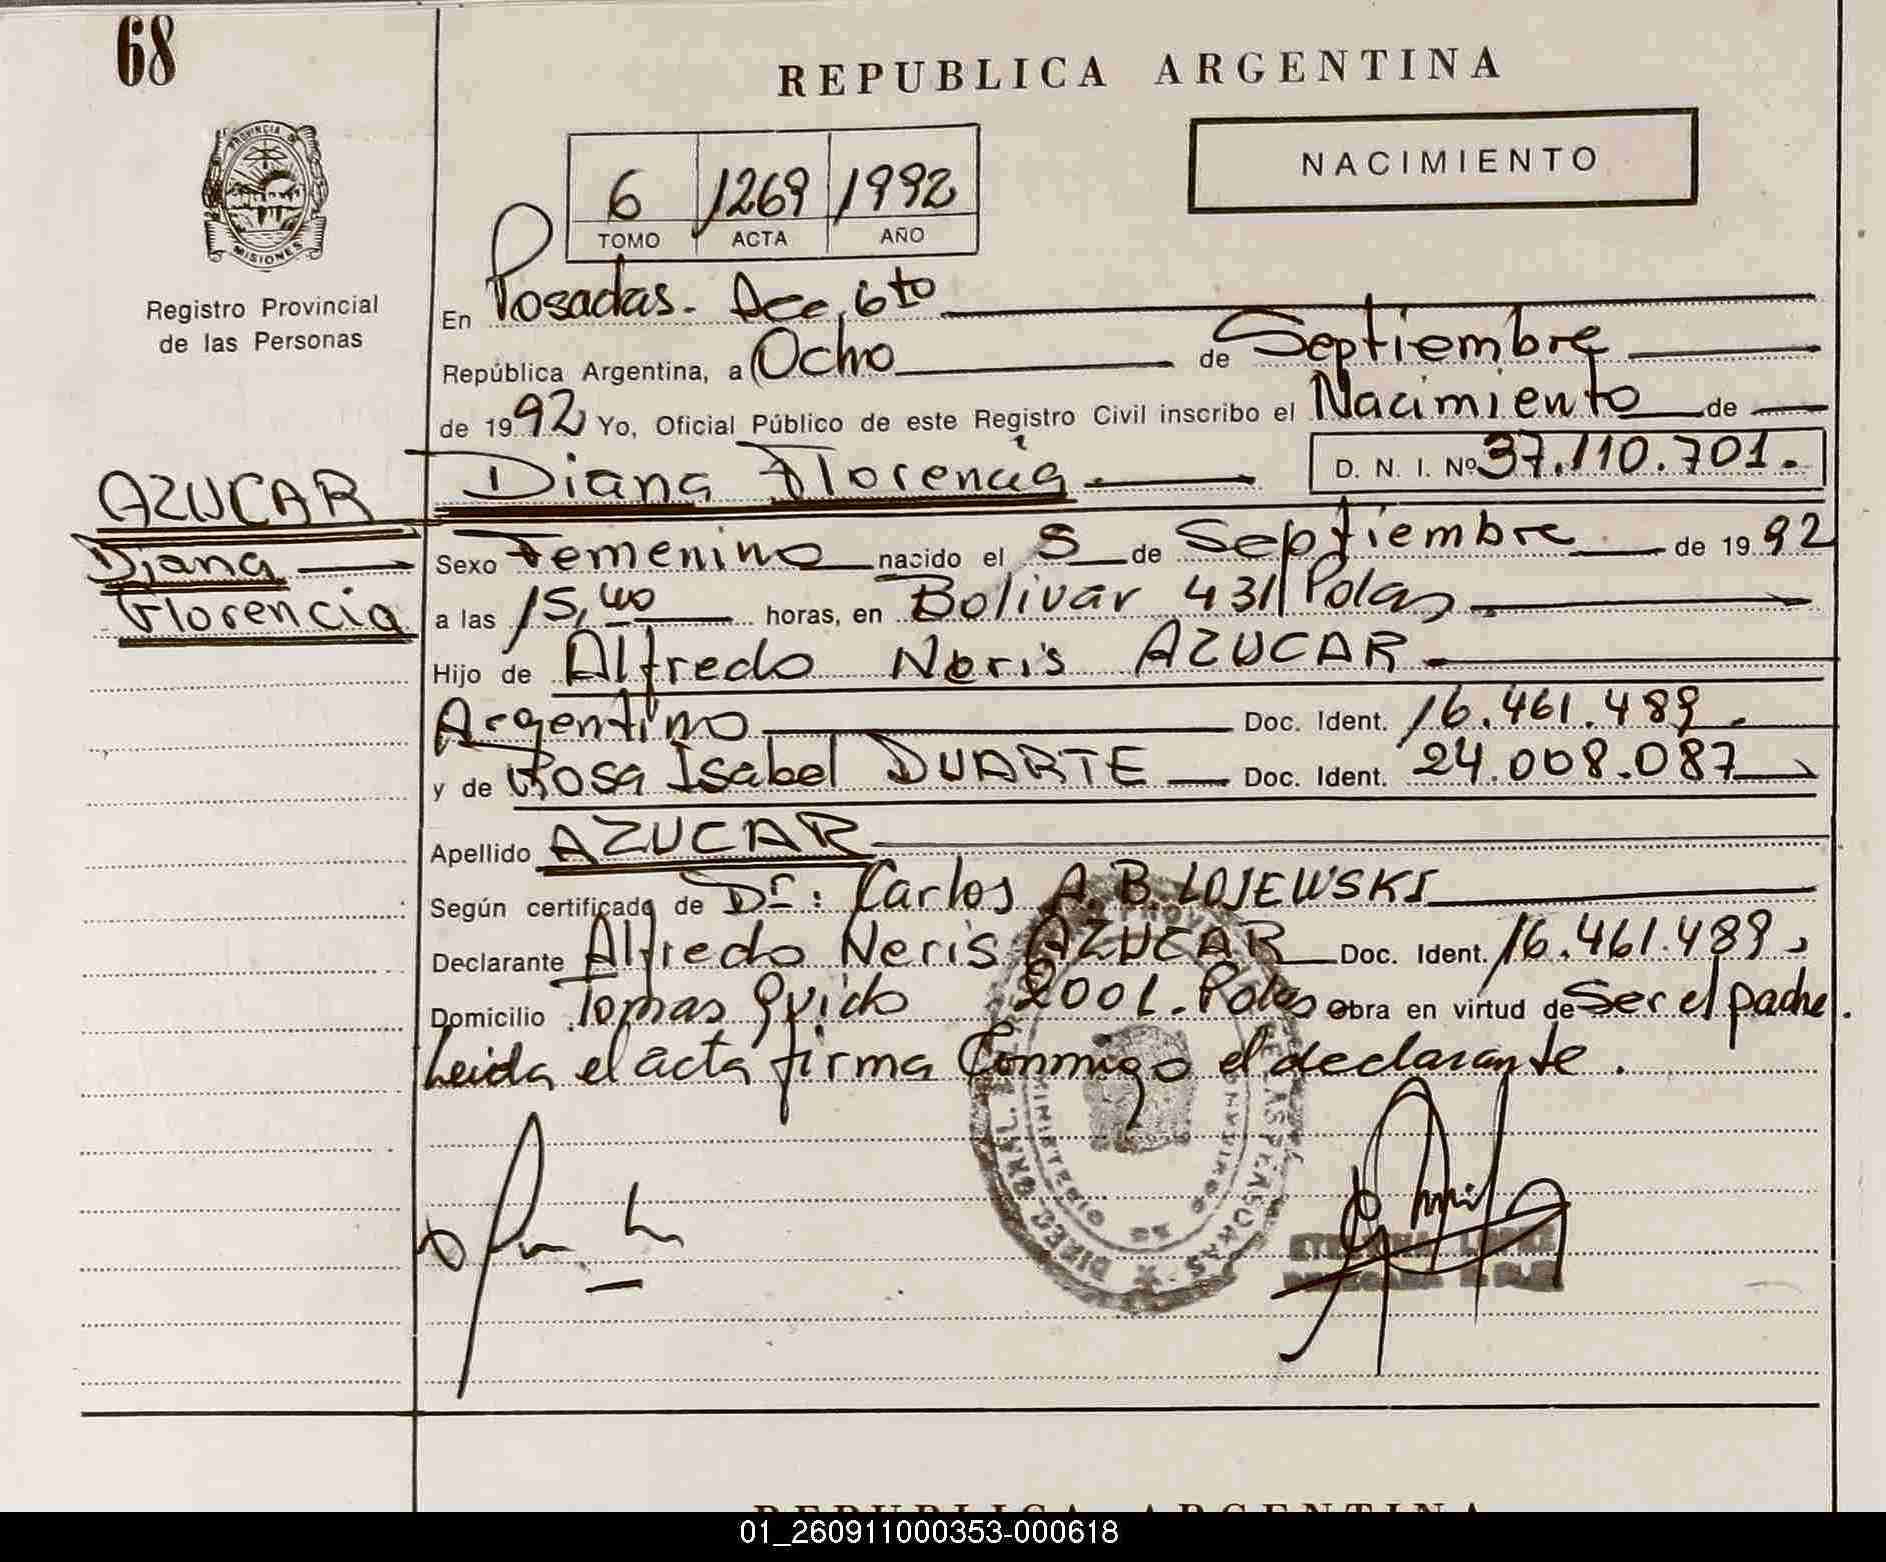 68
REPUBLICA ARGENTINA
NACIMIENTO
6 1269 1992
TOMO ACTA AÑO
PROVINCIA DE
MISIONES
Registro Provincial
de las Personas
En Posadas. Secc. 6to
República Argentina, a Ocho de Septiembre
de 1992 Yo, Oficial Público de este Registro Civil inscribo el Nacimiento de
Diana Florencia D. N. I. Nº 37.110.701.
AZUCAR
Diana
Florencia
Sexo Femenino nacido el 5 de Septiembre de 1992
a las 15,40 horas, en Bolivar 431 Pdas
Hijo de Alfredo Neris AZUCAR
Argentino Doc. Ident. 16.461.489.
y de Rosa Isabel DUARTE Doc. Ident. 24.008.087
Apellido AZUCAR
Según certificado de Dr: Carlos A. B. LOJEWSKI
Declarante Alfredo Neris AZUCAR Doc. Ident. 16.461.489
Domicilio Tomas Guido 2001. Pdas Obra en virtud de Ser el padre.
Leida el acta firma Conmigo el declarante.
REPUBLICA ARGENTINA
01_260911000353-000618